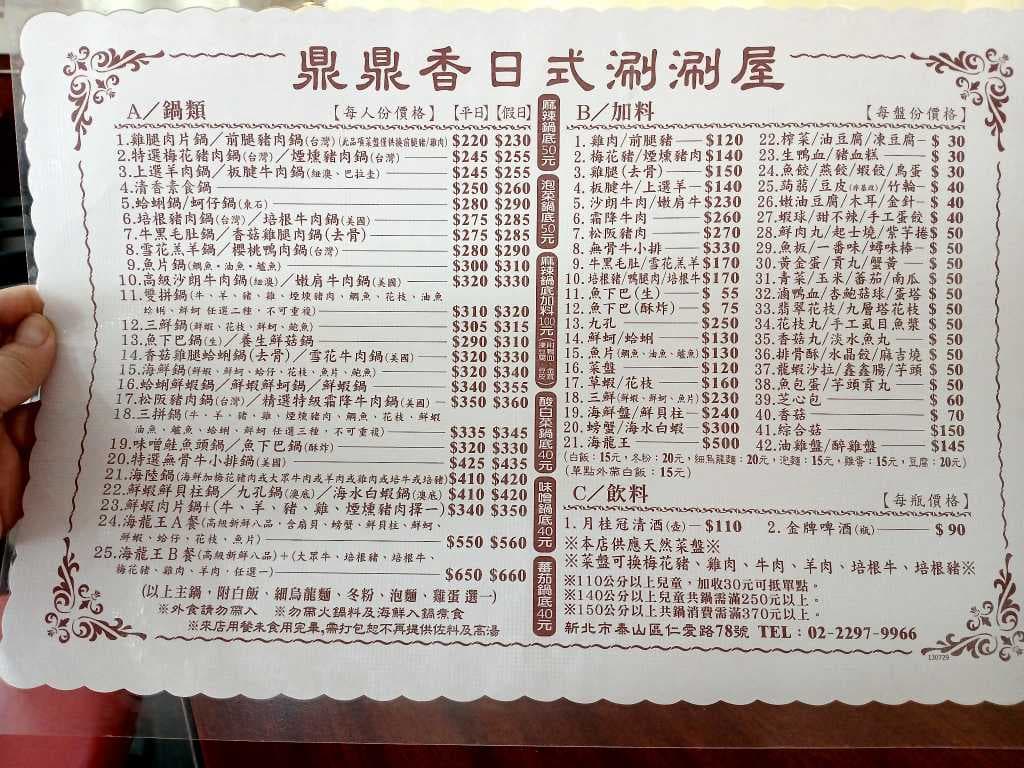 鼎鼎香日式涮涮屋
A／鍋類 【每人份價格】 【平日】【假日】
1.雞腿肉片鍋／前腿豬肉鍋(台灣)(此品項菜盤僅供換前腿豬/雞肉) $220 $230
2.特選梅花豬肉鍋(台灣)／煙燻豬肉鍋(台灣) $245 $255
3.上選羊肉鍋／板腱牛肉鍋(紐澳、巴拉圭) $245 $255
4.清香素食鍋 $250 $260
5.蛤蜊鍋／蚵仔鍋(東石) $280 $290
6.培根豬肉鍋(台灣)／培根牛肉鍋(美國) $275 $285
7.牛黑毛肚鍋／香菇雞腿肉鍋(去骨) $275 $285
8.雪花羔羊鍋／櫻桃鴨肉鍋(台灣) $280 $290
9.魚片鍋(鯛魚、油魚、鱸魚) $300 $310
10.高級沙朗牛肉鍋(紐澳)／嫩肩牛肉鍋(美國) $320 $330
11.雙拼鍋(牛、羊、豬、雞、煙燻豬肉、鯛魚、花枝、油魚
蛤蜊、鮮蚵 任選二種，不可重複) $310 $320
12.三鮮鍋(鮮蝦、花枝、鮮蚵、鮑魚) $305 $315
13.魚下巴鍋(生)／養生鮮菇鍋 $290 $310
14.香菇雞腿蛤蜊鍋(去骨)／雪花牛肉鍋(美國) $320 $330
15.海鮮鍋(鮮蝦、鮮蚵、蛤仔、花枝、魚片、鮑魚) $320 $340
16.蛤蜊鮮蝦鍋／鮮蝦鮮蚵鍋／鮮蝦鍋 $340 $355
17.松阪豬肉鍋(台灣)／精選特級霜降牛肉鍋(美國) $350 $360
18.三拼鍋(牛、羊、豬、雞、煙燻豬肉、鯛魚、花枝、鮮蝦
油魚、鱸魚、蛤蜊、鮮蚵 任選三種，不可重複) $335 $345
19.味噌鮭魚頭鍋／魚下巴鍋(酥炸) $320 $330
20.特選無骨牛小排鍋(美國) $425 $435
21.海陸鍋(海鮮加梅花豬肉或大眾牛肉或羊肉或雞肉或培牛或培豬) $410 $420
22.鮮蝦鮮貝柱鍋／九孔鍋(澳底)／海水白蝦鍋(澳底) $410 $420
23.鮮蝦肉片鍋+(牛、羊、豬、雞、煙燻豬肉擇一) $340 $350
24.海龍王A餐(高級新鮮八品，含扇貝、螃蟹、鮮貝柱、鮮蚵、
鮮蝦、蛤仔、花枝、魚片) $550 $560
25.海龍王B餐(高級新鮮八品)+(大眾牛、培根豬、培根牛、
梅花豬、雞肉、羊肉，任選一) $650 $660
(以上主鍋，附白飯、細烏龍麵、冬粉、泡麵、雞蛋 選一)
※外食請勿帶入 ※勿帶火鍋料及海鮮入鍋煮食
※來店用餐未食用完畢，需打包恕不再提供佐料及高湯
麻辣鍋底50元
泡菜鍋底50元
麻辣鍋底加料100元
酸白菜鍋底40元
味噌鍋底40元
蕃茄鍋底40元
B／加料 【每盤份價格】
1. 雞肉/前腿豬 $120
2. 梅花豬/煙燻豬 $140
3. 雞腿(去骨) $150
4. 板腱牛/上選羊 $140
5. 沙朗牛肉/嫩肩牛 $230
6. 霜降牛肉 $260
7. 松阪豬肉 $270
8. 無骨牛小排 $330
9. 牛黑毛肚/雪花羔羊 $170
10.培根豬/鴨腿肉/培根牛 $170
11.魚下巴(生) $ 55
12.魚下巴(酥炸) $ 75
13.九孔 $250
14.鮮蚵/蛤蜊 $130
15.魚片(鯛魚、油魚、鱸魚) $130
16.菜盤 $120
17.草蝦/花枝 $160
18.三鮮(鮮蝦/鮮蚵/魚片) $230
19.海鮮盤/鮮貝柱 $240
20.螃蟹/海水白蝦 $300
21.海龍王 $500
22.榨菜/油豆腐/凍豆腐 $ 30
23.生鴨血/豬血糕 $ 30
24.魚餃/燕餃/蝦餃/鳥蛋 $ 30
25.蒟蒻/豆皮(非基改)/竹輪 $ 40
26.嫩油豆腐/木耳/金針 $ 40
27.蝦球/甜不辣/手工蛋餃 $ 40
28.鮮肉丸/起士燒/紫芋捲 $ 50
29.魚板/一番味/蟳味棒 $ 50
30.黃金蛋/貢丸/蟹黃 $ 50
31.青菜/玉米/蕃茄/南瓜 $ 50
32.滷鴨血/杏鮑菇球/蛋塔 $ 50
33.翡翠花枝/九層塔花枝 $ 50
34.花枝丸/手工虱目魚漿 $ 50
35.香菇丸/淡水魚丸 $ 50
36.排骨酥/水晶餃/麻吉燒 $ 50
37.龍蝦沙拉/鑫鑫腸/芋頭 $ 50
38.魚包蛋/芋頭貢丸 $ 50
39.芝心包 $ 60
40.香菇 $ 70
41.綜合菇 $150
42.油雞盤/醉雞盤 $145
(白飯：15元，冬粉：20元，細烏龍麵：20元，泡麵：15元，雞蛋：15元，豆腐：20元)
(單點外帶白飯：15元)
C／飲料 【每瓶價格】
1. 月桂冠清酒(壺) $110 2. 金牌啤酒(瓶) $ 90
※本店供應天然菜盤※
※菜盤可換梅花豬、雞肉、牛肉、羊肉、培根牛、培根豬※
※110公分以上兒童，加收30元可抵單點。
※140公分以上兒童共鍋需滿250元以上。
※150公分以上共鍋消費需滿370元以上。
新北市泰山區仁愛路78號 TEL：02-2297-9966
130729